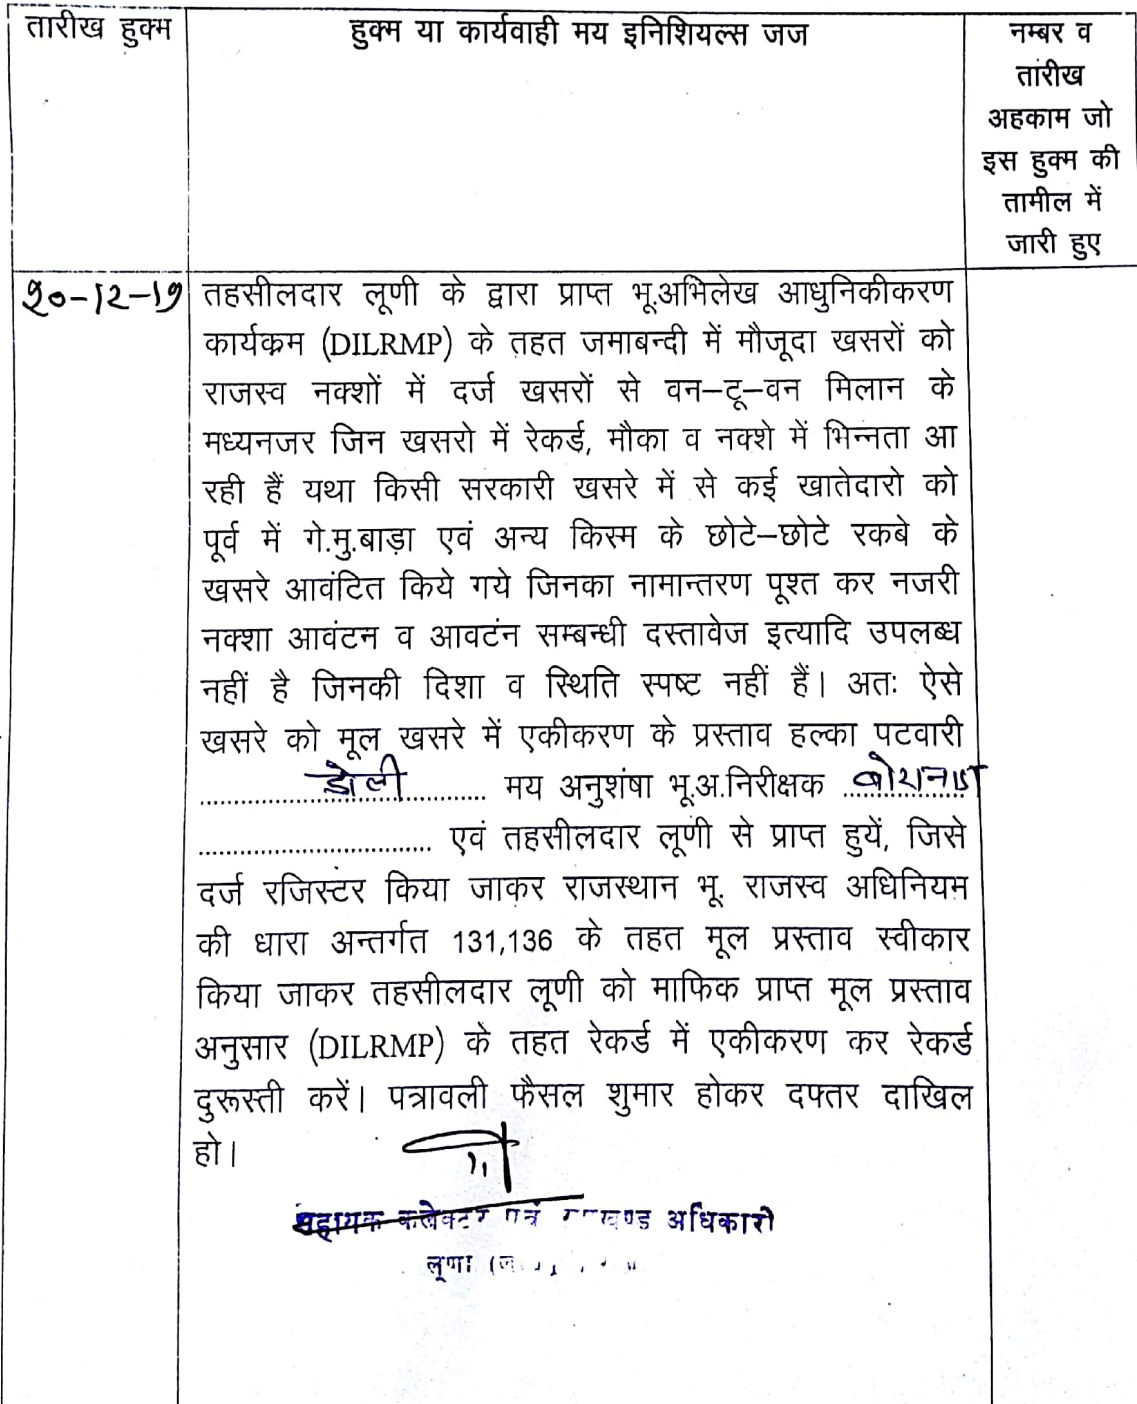 तारीख हुक्म
हुक्म या कार्यवाही मय इनिशियल्स जज
नम्बर व
तारीख
अहकाम जो
इस हुक्म की
तामील में
जारी हुए
20-12-19
तहसीलदार लूणी के द्वारा प्राप्त भू.अभिलेख आधुनिकीकरण
कार्यक्रम (DILRMP) के तहत जमाबन्दी में मौजूदा खसरों को
राजस्व नक्शों में दर्ज खसरों से वन–टू–वन मिलान के
मध्यनजर जिन खसरो में रेकर्ड, मौका व नक्शे में भिन्नता आ
रही हैं यथा किसी सरकारी खसरे में से कई खातेदारो को
पूर्व में गे.मु.बाड़ा एवं अन्य किस्म के छोटे–छोटे रकबे के
खसरे आवंटित किये गये जिनका नामान्तरण पूश्त कर नजरी
नक्शा आवंटन व आवटंन सम्बन्धी दस्तावेज इत्यादि उपलब्ध
नहीं है जिनकी दिशा व स्थिति स्पष्ट नहीं हैं। अतः ऐसे
खसरे को मूल खसरे में एकीकरण के प्रस्ताव हल्का पटवारी
डोली मय अनुशंषा भू.अ.निरीक्षक
एवं तहसीलदार लूणी से प्राप्त हुयें, जिसे
दर्ज रजिस्टर किया जाकर राजस्थान भू. राजस्व अधिनियम
की धारा अन्तर्गत 131,136 के तहत मूल प्रस्ताव स्वीकार
किया जाकर तहसीलदार लूणी को माफिक प्राप्त मूल प्रस्ताव
अनुसार (DILRMP) के तहत रेकर्ड में एकीकरण कर रेकर्ड
दुरूस्ती करें। पत्रावली फैसल शुमार होकर दफ्तर दाखिल
हो।
सहायक कलेक्टर अधिकारी